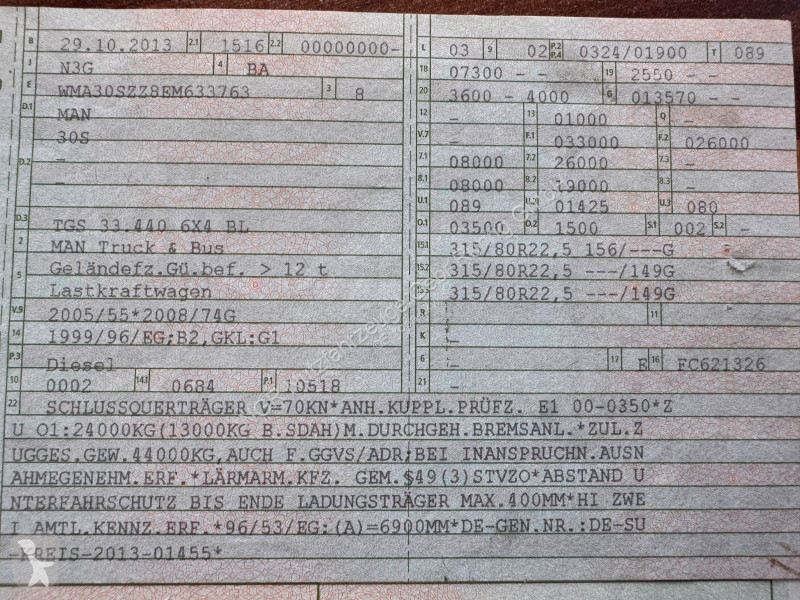 B 29.10.2013 2.1 1516 2.2 00000000-
J N3G 4 BA
E WMA30SZZ8EM633763 3 8
D.1 MAN
30S
D.2 -
-
D.3 TGS 33.440 6X4 BL
2 MAN Truck & Bus
5 Geländefz.Gü.bef. > 12 t
Lastkraftwagen
V.9 2005/55*2008/74G
14 1999/96/EG;B2,GKL:G1
P.3 Diesel
10 0002 14.1 0684 P.1 10518
L 03 9 02 P.2 P.4 0324/01900 T 089
18 07300 - - 19 2550 - -
20 3600 - 4000 G 013570 - -
12 - 13 01000 Q -
V.7 - F.1 033000 F.2 026000
7.1 08000 7.2 26000 7.3 -
8.1 08000 8.2 19000 8.3 -
U.1 089 U.2 01425 U.3 080
O.1 03500 O.2 1500 S.1 002 S.2 -
15.1 315/80R22,5 156/---G
15.2 315/80R22,5 ---/149G
15.3 315/80R22,5 ---/149G
R - 11
K -
6 - 17 E 16 FC621326
21 -
22 SCHLUSSQUERTRÄGER V=70KN*ANH.KUPPL.PRÜFZ. E1 00-0350*Z
U O1:24000KG(13000KG B.SDAH)M.DURCHGEH.BREMSANL.*ZUL.Z
UGGES.GEW.44000KG,AUCH F.GGVS/ADR;BEI INANSPRUCHN.AUSN
AHMEGENEHM.ERF.*LÄRMARM.KFZ. GEM.§49(3)STVZO*ABSTAND U
NTERFAHRSCHUTZ BIS ENDE LADUNGSTRÄGER MAX.400MM*HI ZWE
I AMTL.KENNZ.ERF.*96/53/EG:(A)=6900MM*DE-GEN.NR.:DE-SU
-KREIS-2013-01455*